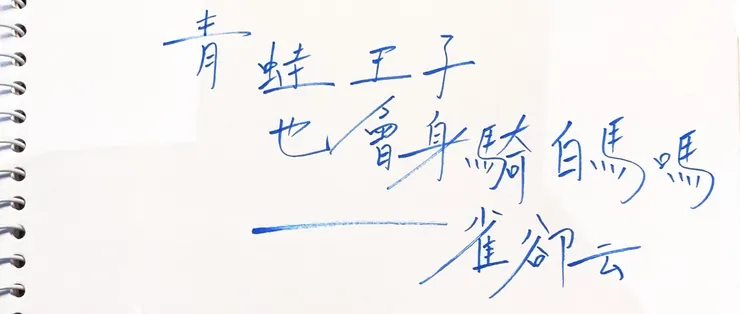 青蛙王子
也會身騎白馬嗎
——雀卻云